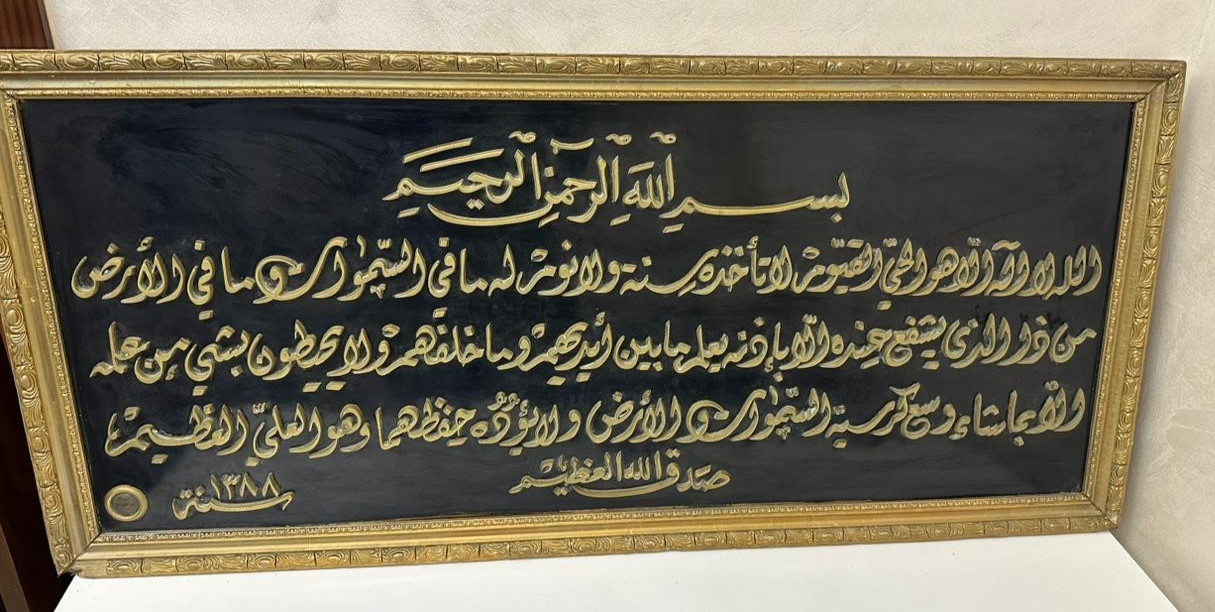 بسم الله الرحمن الرحيم
الله لا إله إلا هو الحي القيوم لا تأخذه سنة ولا نوم له ما في السموات وما في الأرض
من ذا الذي يشفع عنده إلا بإذنه يعلم ما بين أيديهم وما خلفهم ولا يحيطون بشيء من علمه
إلا بما شاء وسع كرسيه السموات والأرض ولا يؤده حفظهما وهو العلي العظيم
صدق الله العظيم
سنة ١٣٨٨